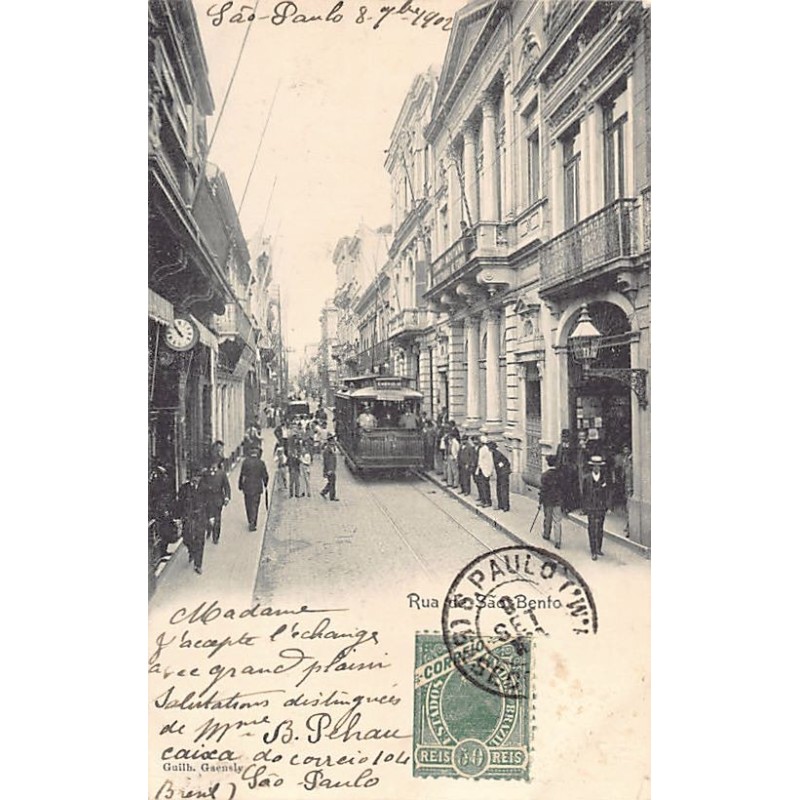 São-Paulo 8 7bre 1902
Rua de São Bento
S. PAULO
SET
Madame
J'accepte l'échange
avec grand plaisir
Salutations distinguées
de Mme B. Pehau
caixa do correio 104
Guilh. Gaensly
São-Paulo
Bresil)
CORREIO
ESTADOS
BRAZIL
REIS 50 REIS